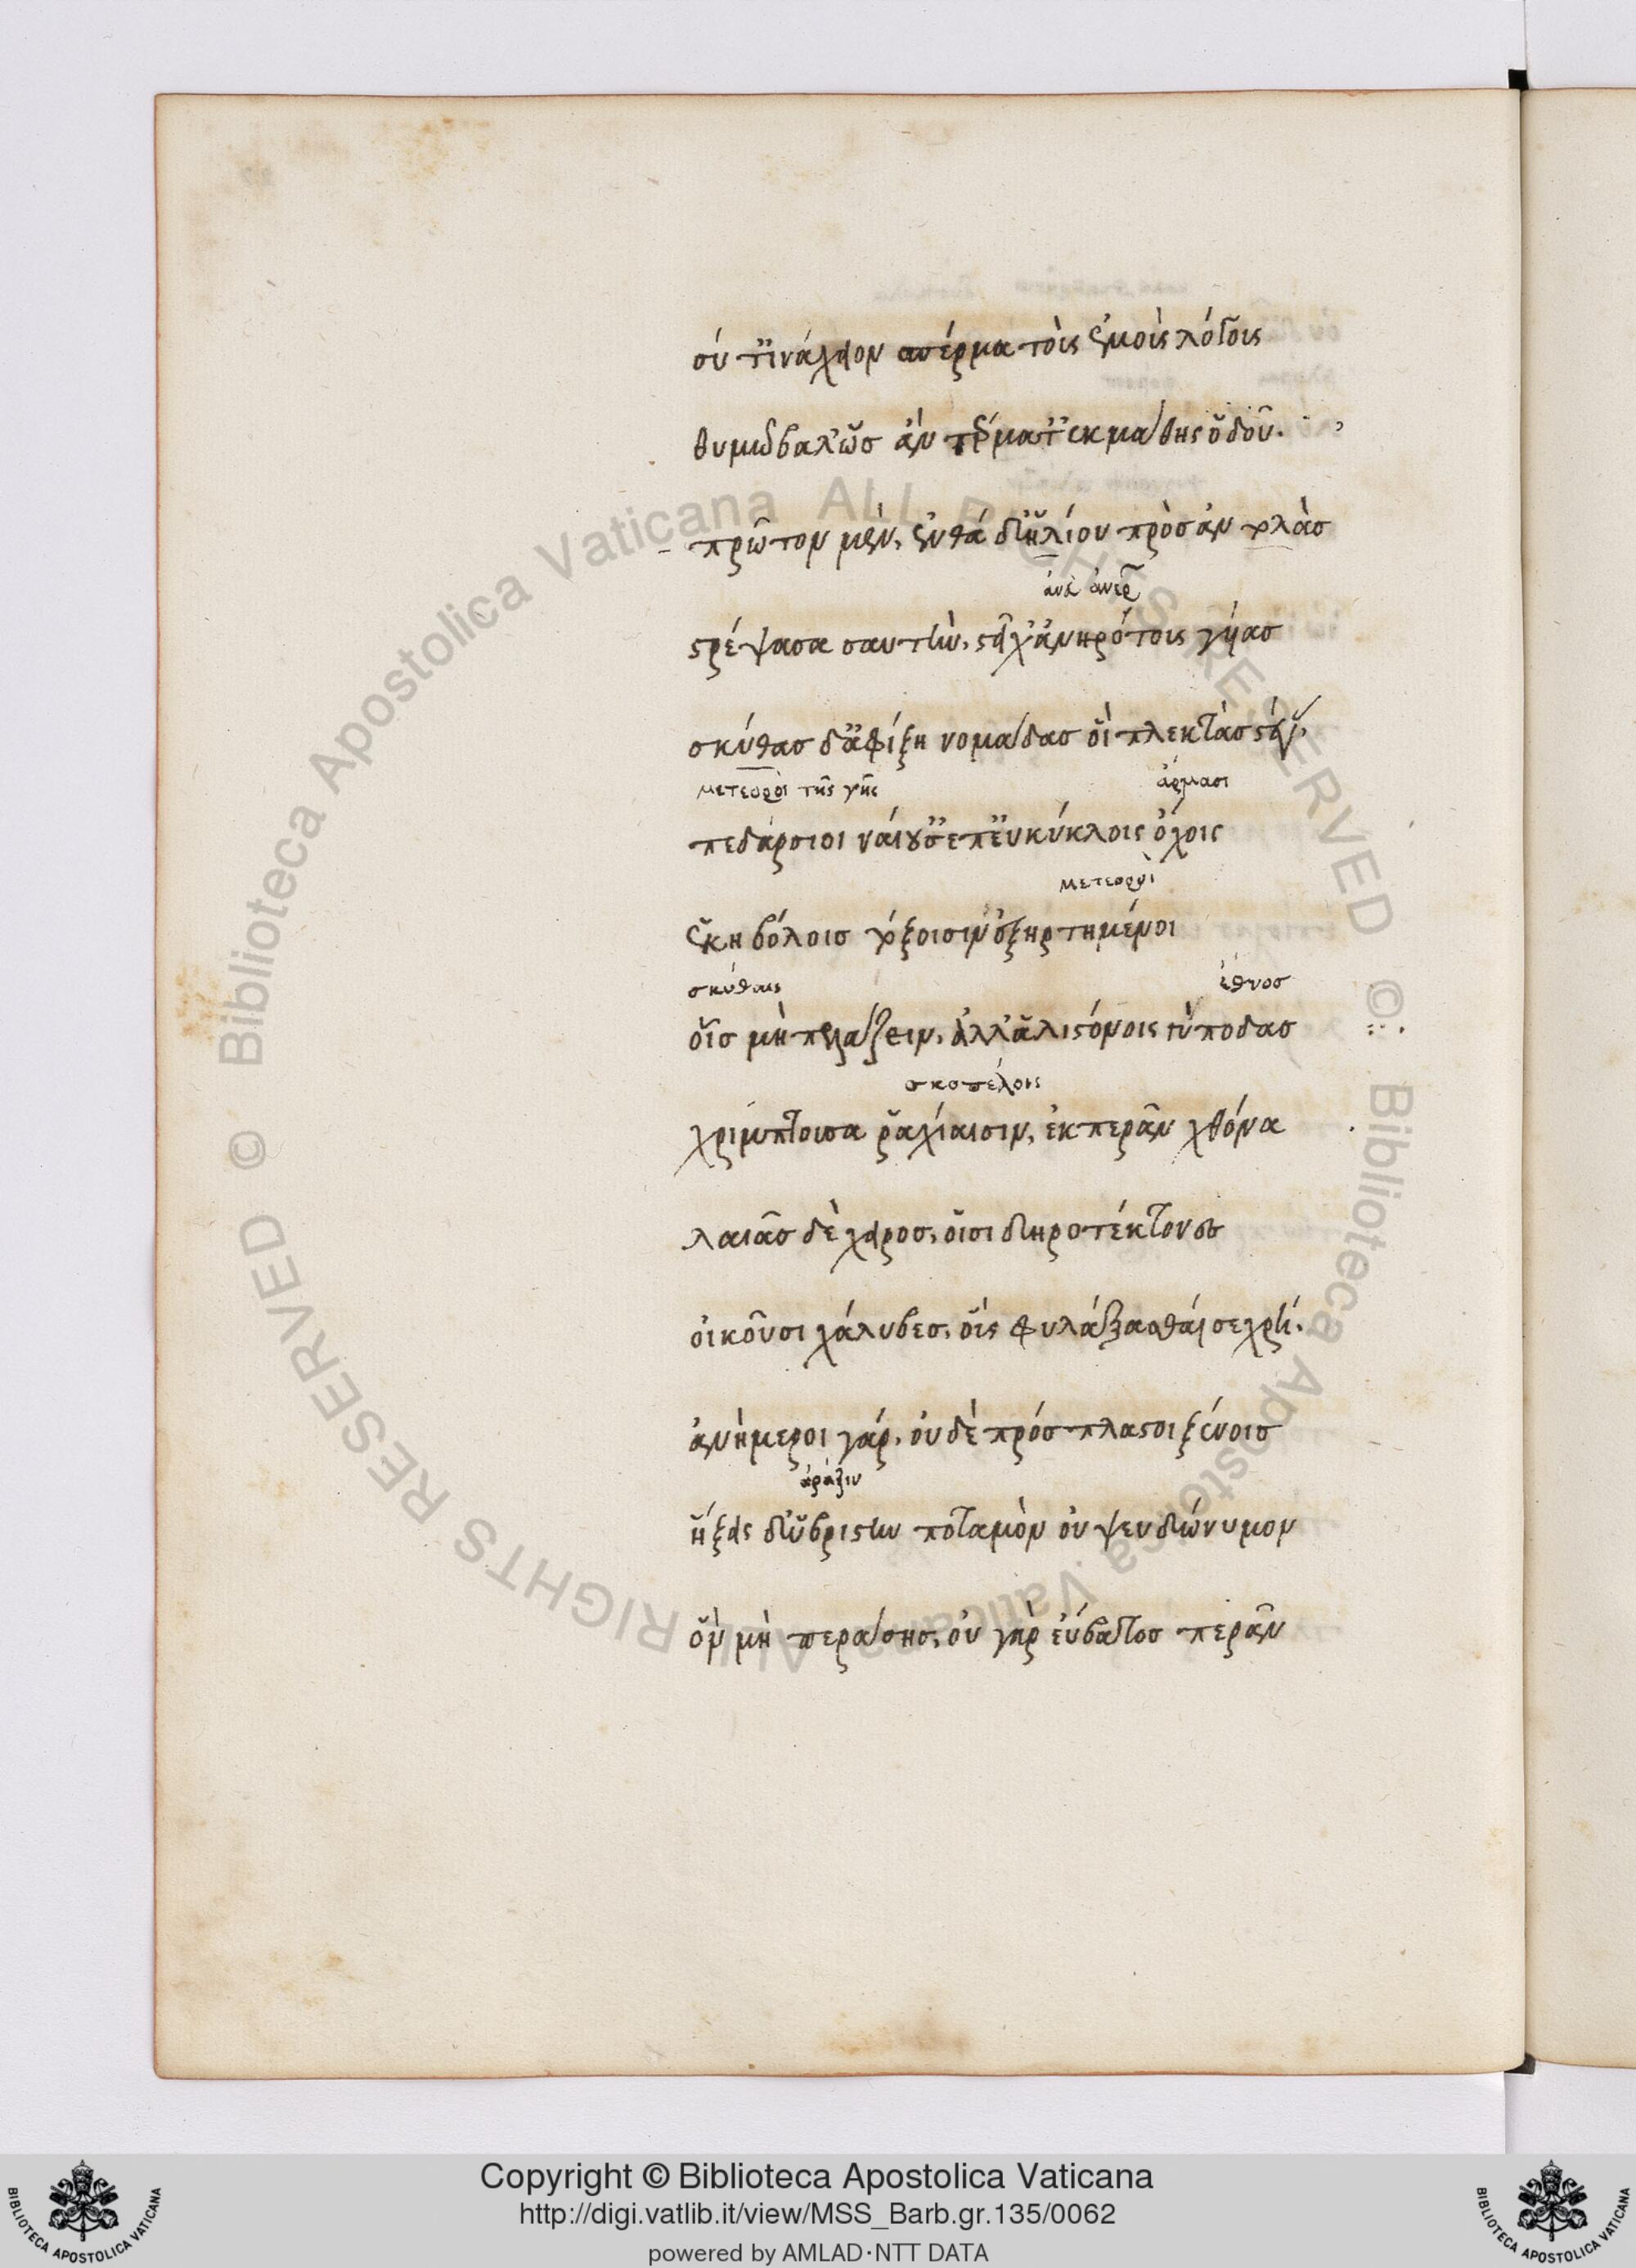 σύ τ' ἰνάχειον σπέρμα τοῖς ἐμοῖς λόγοις
θυμῶ βάλ' ὡς ἂν τέρματ' ἐκμάθης ὁδοῦ.
πρῶτον μὲν, ἐνθένδ' ἡλίου πρὸς ἀντολὰς
στρέψασα σαυτὴν, στεῖχ' ἀνηρότοις γύας
σκύθας δ' ἀφίξη νομάδας οἳ πλεκτὰς στέγ.
μετέωροι τῆς γῆς ἅρμασι
πεδάρσιοι ναίουσ' ἐπ' εὐκύκλοις ὄχοις
μετέωροι
ἑκηβόλοις τόξοισιν ἐξηρτημένοι
σκύθαις ἔθνος
οἷς μὴ πελάζειν, ἀλλ' ἁλιστόνοις γύποδας
σκοπέλοις
χρίμπτουσα ῥαχίαισιν, ἐκπερᾶν χθόνα
λαιᾶς δὲ χειρὸς, οἱ σιδηροτέκτονες
οἰκοῦσι χάλυβες, οὓς φυλάξασθαί σε χρή.
ἀνήμεροι γάρ, οὐδὲ πρόσπλαστοι ξένοις
ἀράξιν
ἥξεις δ' ὑβριστὴν ποταμὸν οὐ ψευδώνυμον
ὃν μὴ περάσης, οὐ γὰρ εὔβατος περᾶν
Copyright © Biblioteca Apostolica Vaticana
http://digi.vatlib.it/view/MSS_Barb.gr.135/0062
powered by AMLAD·NTT DATA
BIBLIOTECA APOSTOLICA VATICANA
BIBLIOTECA APOSTOLICA VATICANA
© Biblioteca Apostolica Vaticana ALL RIGHTS RESERVED
© Biblioteca Apostolica Vaticana ALL RIGHTS RESERVED